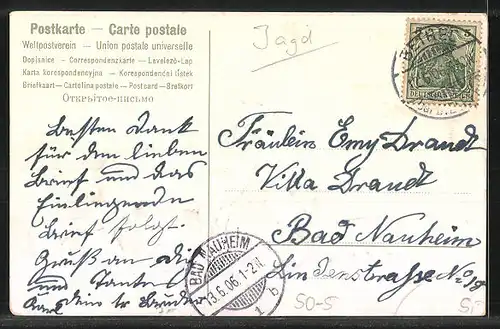 Postkarte — Carte postale
Weltpostverein — Union postale universelle
Dopisnice — Correspondenzkarte — Levelező-Lap
Karta korespondencyjna — Korespondenční lístek
Briefkaart — Cartolina postale — Postcard — Brefkort
Открытое письмо
Jagd
Besten Dank
für den lieben
Brief und das
Einliegende
Brief folgt.
Gruß an Die
und Tanten
dein tr. Bruder
Karl
Fräulein Emy Brandt
Villa Brandt
Bad Nauheim
Lindenstrasse No 18
BAD NAUHEIM
13.6.06. 1-2 N.
b
50-5